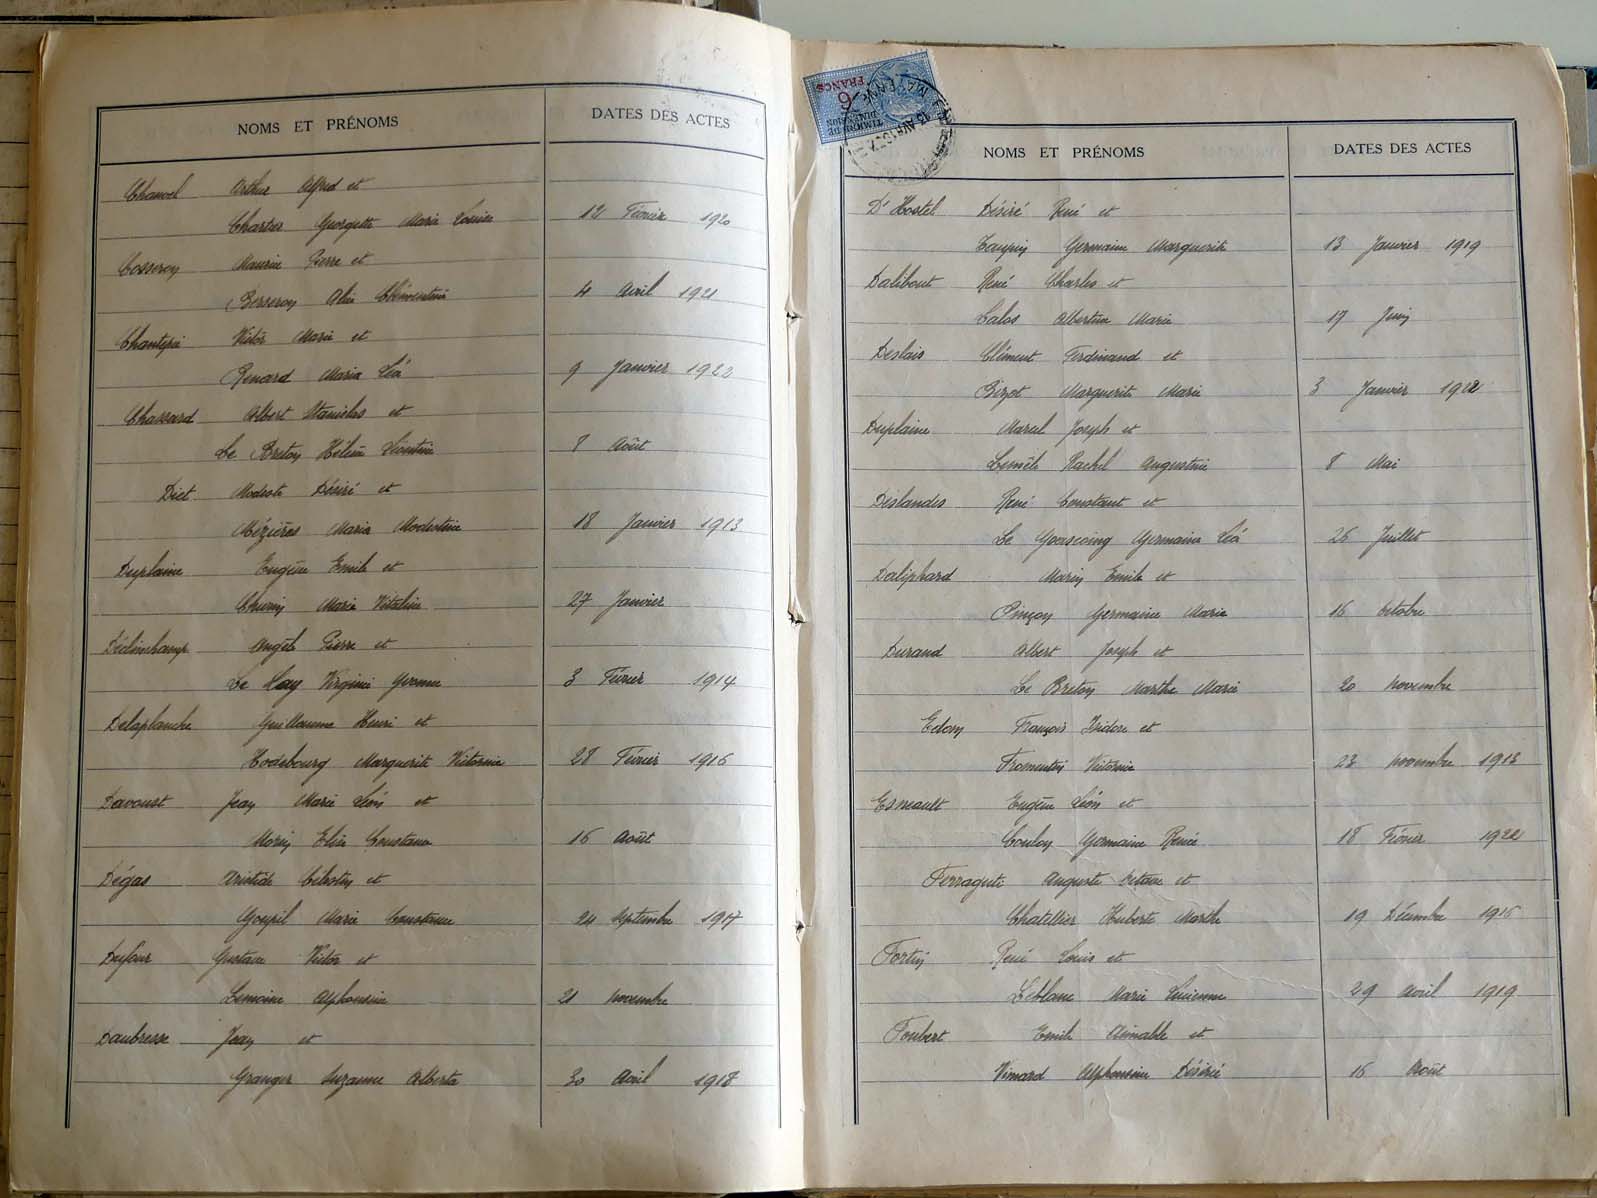 NOMS ET PRÉNOMS DATES DES ACTES
Chauvel Arthur Alfred et
Chartres Georgette Marie Louise 12 Février 1920
Cosseron Maurice Pierre et
Alice Clémentine 4 Avril 1921
Chantepie Victor Marie et
Renard Maria Léa 9 Janvier 1922
Chassard Albert Stanislas et
Le Breton Hélène Léontine 8 Août
Diet Modeste Désiré et
Mézières Maria Modestine 18 Janvier 1913
Duplaine Eugène Emile et
Marie Vitaline 27 Janvier
Angèle Pierre et
Le Hay Virginie Yvonne 3 Février 1914
Delaplanche Guillaume Henri et
Hodebourg Marguerite Victorine 28 Février 1916
Davoust Jean Marie Léon et
Morin Elisa Constance 16 Août
Dégas Aristide Célestin et
Goupil Marie Constance 24 Septembre 1917
Dufour Gustave Victor et
Lemoine Alphonsine 21 novembre
Daubresse Jean et
Granger Suzanne Alberta 30 Avril 1918
6
FRANCS
TIMBRE DE
DIMENSION
NOMS ET PRÉNOMS DATES DES ACTES
D'Hostel Désiré René et
Taupin Germaine Marguerite 13 Janvier 1919
Dalibout René Charles et
Calos Albertine Marie 17 Juin
Deslais Clément Ferdinand et
Bizot Marguerite Marie 3 Janvier
Duplaine Marcel Joseph et
Rachel Augustine 8 Mai
Deslandes René Constant et
Le Germaine Léa 26 Juillet
Daliphard Marin Emile et
Pinçon Germaine Marie 16 Octobre
Durand Albert Joseph et
Le Breton Marthe Marie 20 novembre
Edon François Isidore et
Fromentin Victorine 23 novembre 1918
Esneault Eugène Léon et
Coulon Germaine Renée 18 Février 1922
Ferragute Auguste Octave et
Chatellier Huberte Marthe 19 Décembre 1916
Fortin René Louis et
Leblanc Marie Lucienne 29 Avril 1919
Foubert Emile Aimable et
Vimard Alphonsine Désirée 16 Août